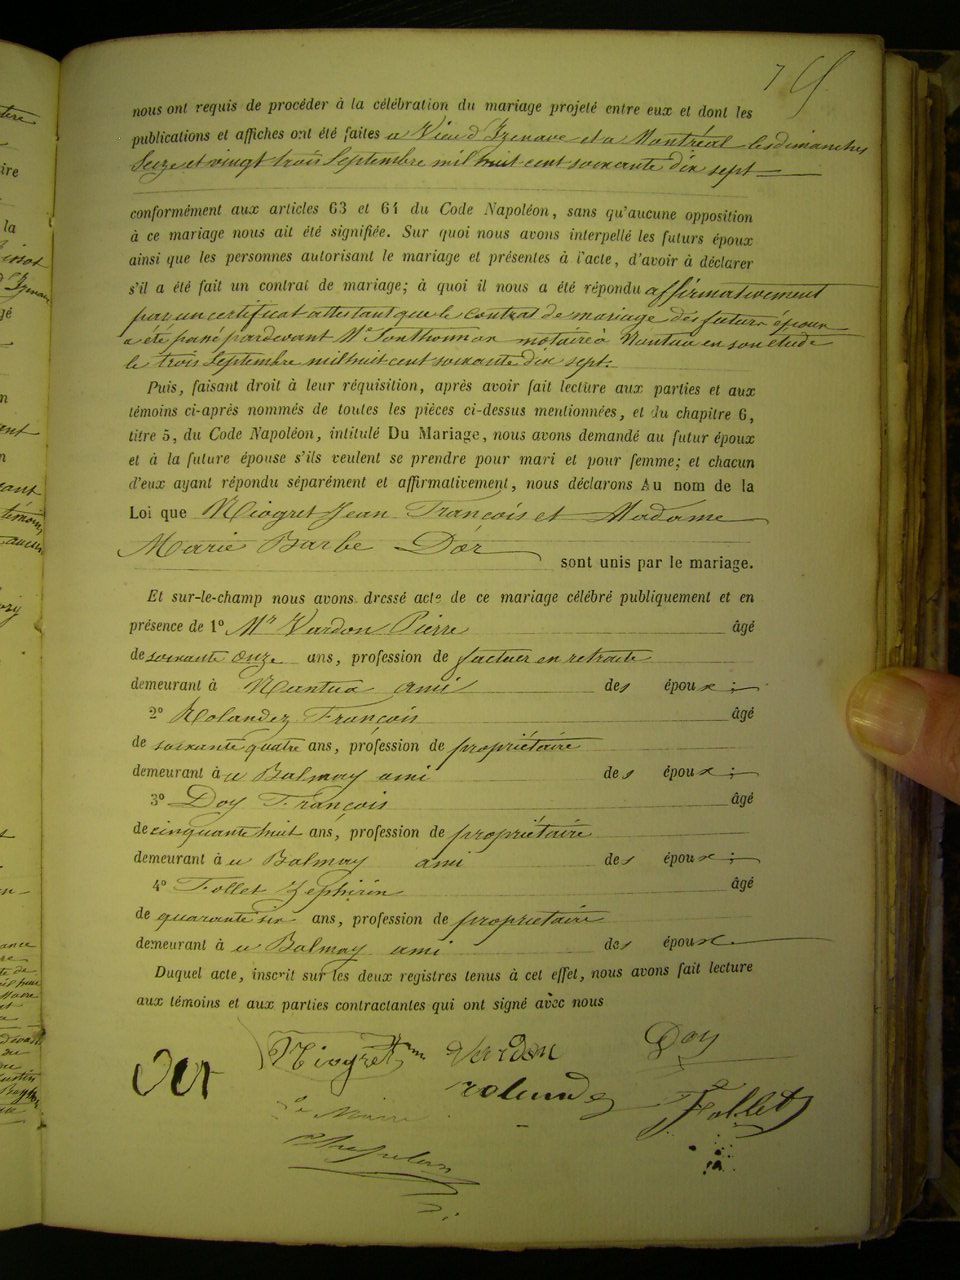 nous ont requis de procéder à la célébration du mariage projeté entre eux et dont les
publications et affiches ont été faites a Vieu d'Izenave et a Montréal les dimanches
Seize et vingt trois Septembre mil huit cent soixante dix sept
conformément aux articles 63 et 64 du Code Napoléon, sans qu'aucune opposition
à ce mariage nous ait été signifiée. Sur quoi nous avons interpellé les futurs époux
ainsi que les personnes autorisant le mariage et présentes à l'acte, d'avoir à déclarer
s'il a été fait un contrat de mariage; à quoi il nous a été répondu affirmativement
par un certificat attestant que le contrat de mariage des futurs époux
a été passé pardevant Me notaire à Nantua en son étude
le trois Septembre mil huit cent soixante dix sept.
Puis, faisant droit à leur réquisition, après avoir fait lecture aux parties et aux
témoins ci-après nommés de toutes les pièces ci-dessus mentionnées, et du chapitre 6,
titre 5, du Code Napoléon, intitulé Du Mariage, nous avons demandé au futur époux
et à la future épouse s'ils veulent se prendre pour mari et pour femme; et chacun
d'eux ayant répondu séparément et affirmativement, nous déclarons Au nom de la
Loi que Niogret Jean François et Madame
Marie Barbe Dör
sont unis par le mariage.
Et sur-le-champ nous avons dressé acte de ce mariage célébré publiquement et en
présence de 1° Mr Verdon Pierre âgé
de soixante onze ans, profession de facteur en retraite
demeurant à Nantua ami des époux ;
2° Rolandez François âgé
de soixante quatre ans, profession de propriétaire
demeurant à u Balmay ami des époux ;
3° Doy François âgé
de cinquante huit ans, profession de propriétaire
demeurant à u Balmay ami des époux ;
4° Follet Zephirin âgé
de quarante six ans, profession de propriétaire
demeurant à u Balmay ami des époux
Duquel acte, inscrit sur les deux registres tenus à cet effet, nous avons fait lecture
aux témoins et aux parties contractantes qui ont signé avec nous
Niogret Verdon Doy
rolandez Follet
Le Maire